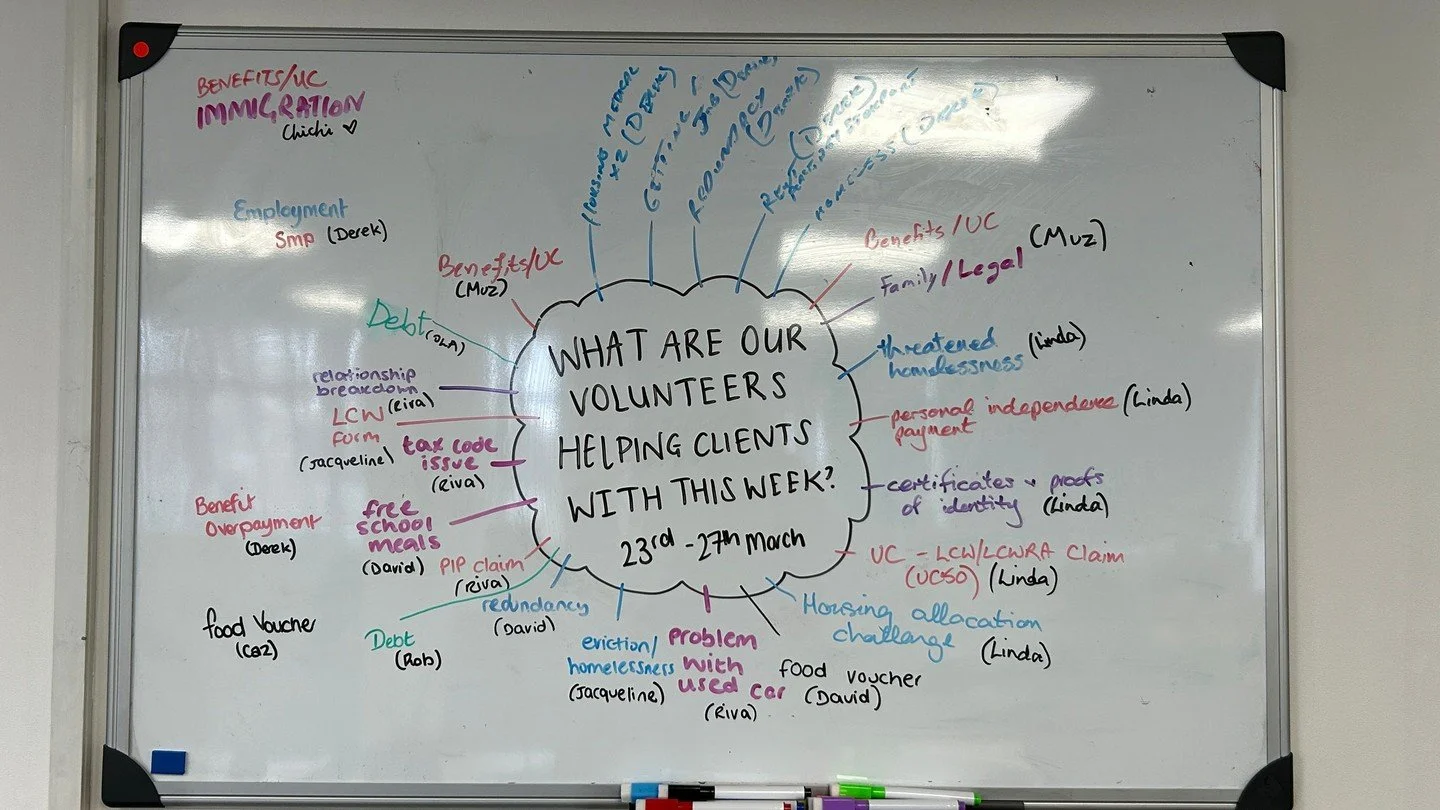 BENEFITS/UC
IMMIGRATION
Chichi ♡
Employment
Smp (Derek)
Benefits/UC
(Muz)
Debt
relationship
breakdown
(Riva)
LCW
form
(Jacqueline)
tax code
issue
(Riva)
Benefit
Overpayment
(Derek)
free
school
meals
(David)
PIP claim
(Riva)
food Voucher
Debt
(Rob)
redundancy
(David)
MEDICAL
x2 (DEREK)
GETTING
JOB
REDUNDANCY
RENT (DEREK)
HOMELESS (DEREK)
WHAT ARE OUR
VOLUNTEERS
HELPING CLIENTS
WITH THIS WEEK?
23rd - 27th March
Benefits/UC
Family/Legal (Muz)
threatened
homelessness
(Linda)
personal independence (Linda)
payment
certificates + proofs
of identity (Linda)
UC - LCW/LCWRA Claim
(UC50) (Linda)
Housing allocation
challange
(Linda)
eviction/
homelessness
(Jacqueline)
problem
with
used car
(Riva)
food voucher
(David)